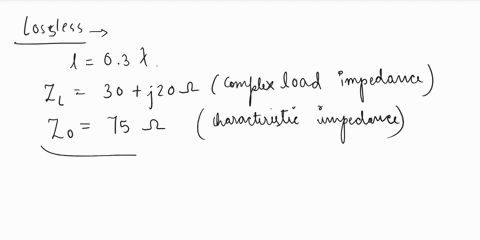 Lossless →
l = 0.3 λ.
Z_L = 30 + j20 Ω (complex load impedance)
Z_0 = 75 Ω (characteristic impedance)